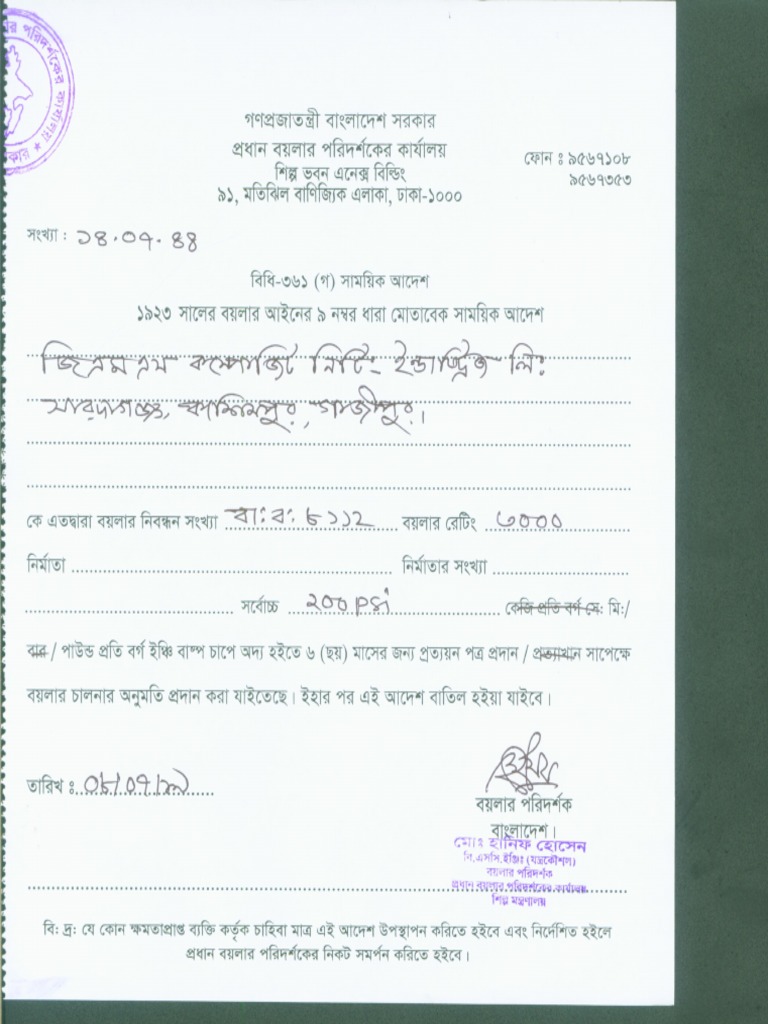 র পরিদর্শকের কার্যালয়
গণপ্রজাতন্ত্রী বাংলাদেশ সরকার
প্রধান বয়লার পরিদর্শকের কার্যালয়
শিল্প ভবন এনেক্স বিল্ডিং
৯১, মতিঝিল বাণিজ্যিক এলাকা, ঢাকা-১০০০
ফোন : ৯৫৬৭১০৮
৯৫৬৭৩৫৩
সংখ্যা : ১৪.০৭.৪৪
বিধি-৩৬১ (গ) সাময়িক আদেশ
১৯২৩ সালের বয়লার আইনের ৯ নম্বর ধারা মোতাবেক সাময়িক আদেশ
জিএমএস কম্পোজিট নিটিং ইন্ডাস্ট্রিজ লিঃ
সারদাগঞ্জ, কাশিমপুর, গাজীপুর।
কে এতদ্বারা বয়লার নিবন্ধন সংখ্যা বাঃবঃ ৮১১২ বয়লার রেটিং ৩০০০
নির্মাতা নির্মাতার সংখ্যা
সর্বোচ্চ ২০০ psi কেজি প্রতি বর্গ সে: মি:/
বার / পাউন্ড প্রতি বর্গ ইঞ্চি বাষ্প চাপে অদ্য হইতে ৬ (ছয়) মাসের জন্য প্রত্যয়ন পত্র প্রদান / প্রত্যাখান সাপেক্ষে
বয়লার চালনার অনুমতি প্রদান করা যাইতেছে। ইহার পর এই আদেশ বাতিল হইয়া যাইবে।
তারিখ : ০৮/০৭/১৭
বয়লার পরিদর্শক
বাংলাদেশ।
মোঃ হানিফ হোসেন
বি.এসসি.ইঞ্জিঃ (যন্ত্রকৌশল)
বয়লার পরিদর্শক
প্রধান বয়লার পরিদর্শকের কার্যালয়
শিল্প মন্ত্রণালয়
বি: দ্র: যে কোন ক্ষমতাপ্রাপ্ত ব্যক্তি কর্তৃক চাহিবা মাত্র এই আদেশ উপস্থাপন করিতে হইবে এবং নির্দেশিত হইলে
প্রধান বয়লার পরিদর্শকের নিকট সমর্পন করিতে হইবে।